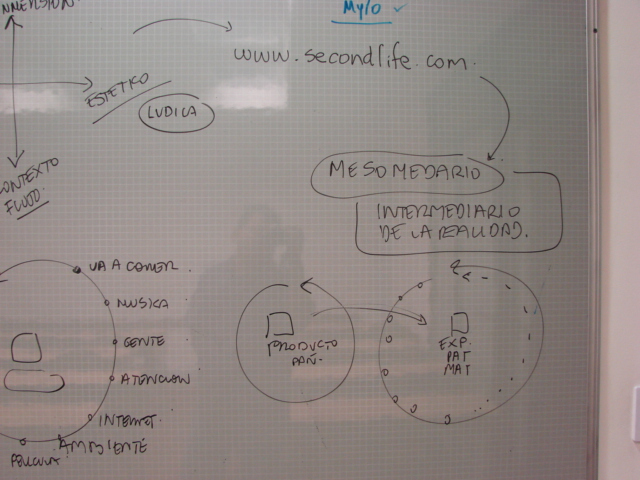 Mylo
www.secondlife.com.
ESTETICO
LUDICA
CONTEXTO
FLUJO.
MESOMEDARIO
INTERMEDIARIO
DE LA REALIDAD.
VA A COMER.
MUSICA
GENTE
ATENCION
INTERNET.
AMBIENTE
PELICULA
PRODUCTO
EXP.
PAT
MAT